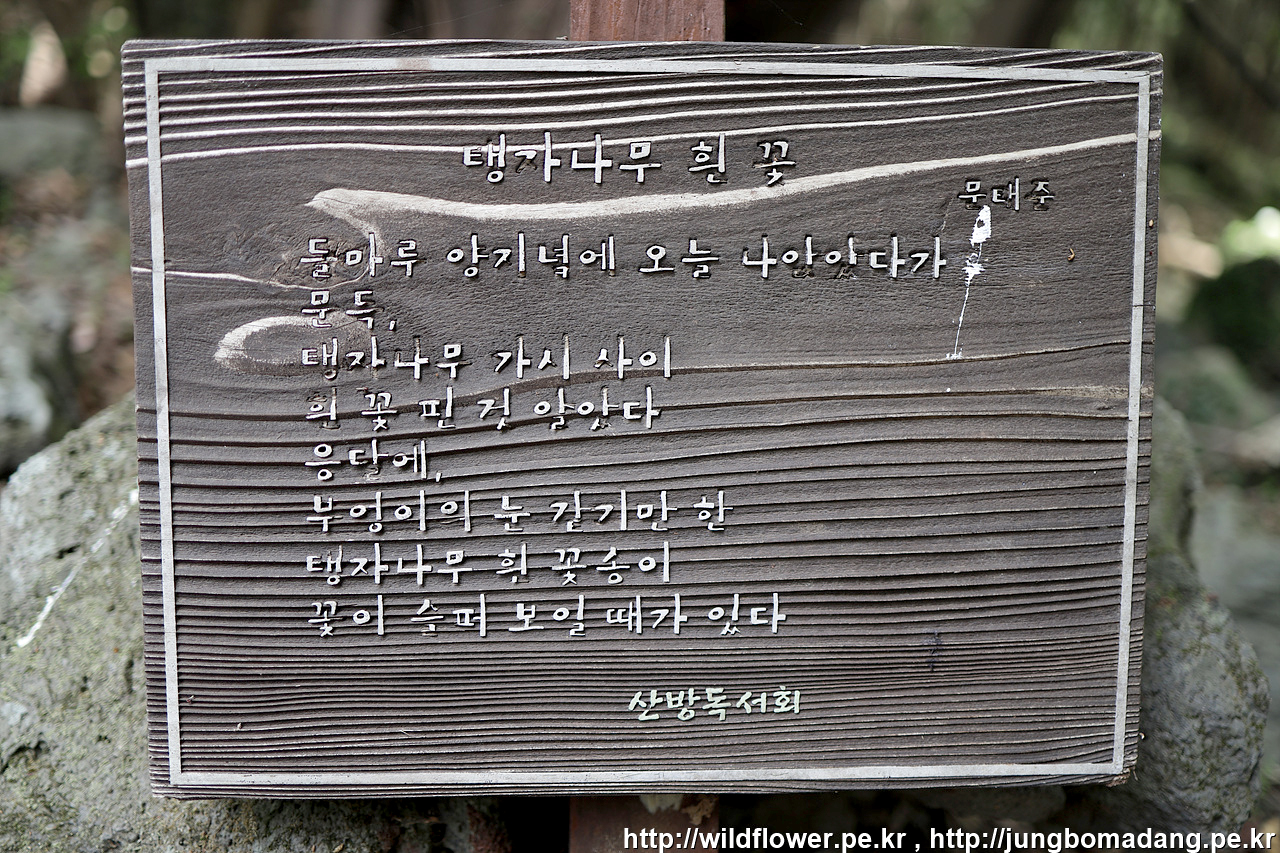 탱자나무 흰 꽃
문태준
들마루 양기녘에 오늘 나앉았다가
문득,
탱자나무 가시 사이
흰 꽃 핀 것 알았다
응달에,
부엉이의 눈 같기만 한
탱자나무 흰 꽃송이
꽃이 슬퍼 보일 때가 있다
산방독서회
http://wildflower.pe.kr , http://jungbomadang.pe.kr